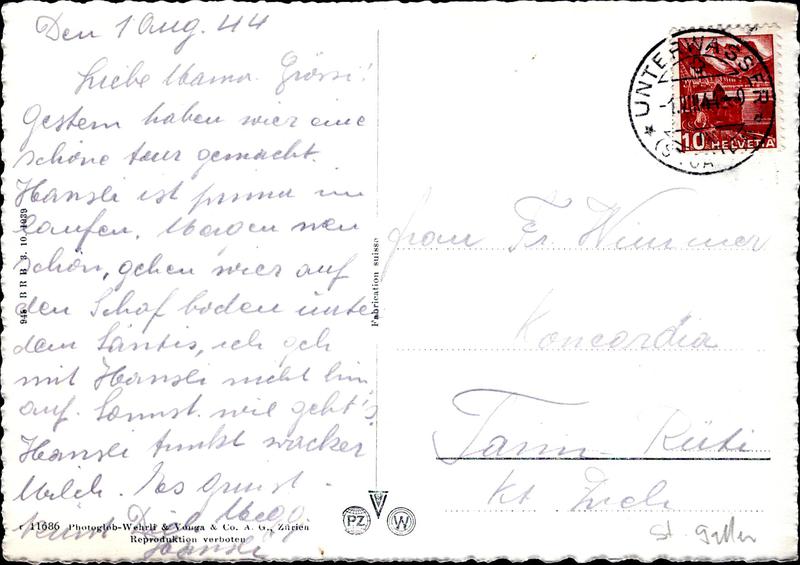 Den 1 Aug. 44
Liebe Mama. Grössi!
Gestern haben wier eine
schöne tour gemacht.
Hansli ist prima im
laufen. Morgen wen
schön, gehen wier auf
den Schaf boden unter
dem Säntis, ich geh
mit Hansli nicht hin
auf. Sonnst. wie geht's
Hansli trinkt wacker
Milch. Es grüsst
Dich
Hansli
r 11686 Photoglob-Wehrli & Vouga & Co. A. G., Zürich
Reproduktion verboten
945 B R B 3. 10. 1939
Fabrication suisse
PZ W
UNTERWASSER
10 HELVETIA
Frau Fr. Wimmer
Koncordia
Tann-Rüti
Kt. Zürich
St. Gallen